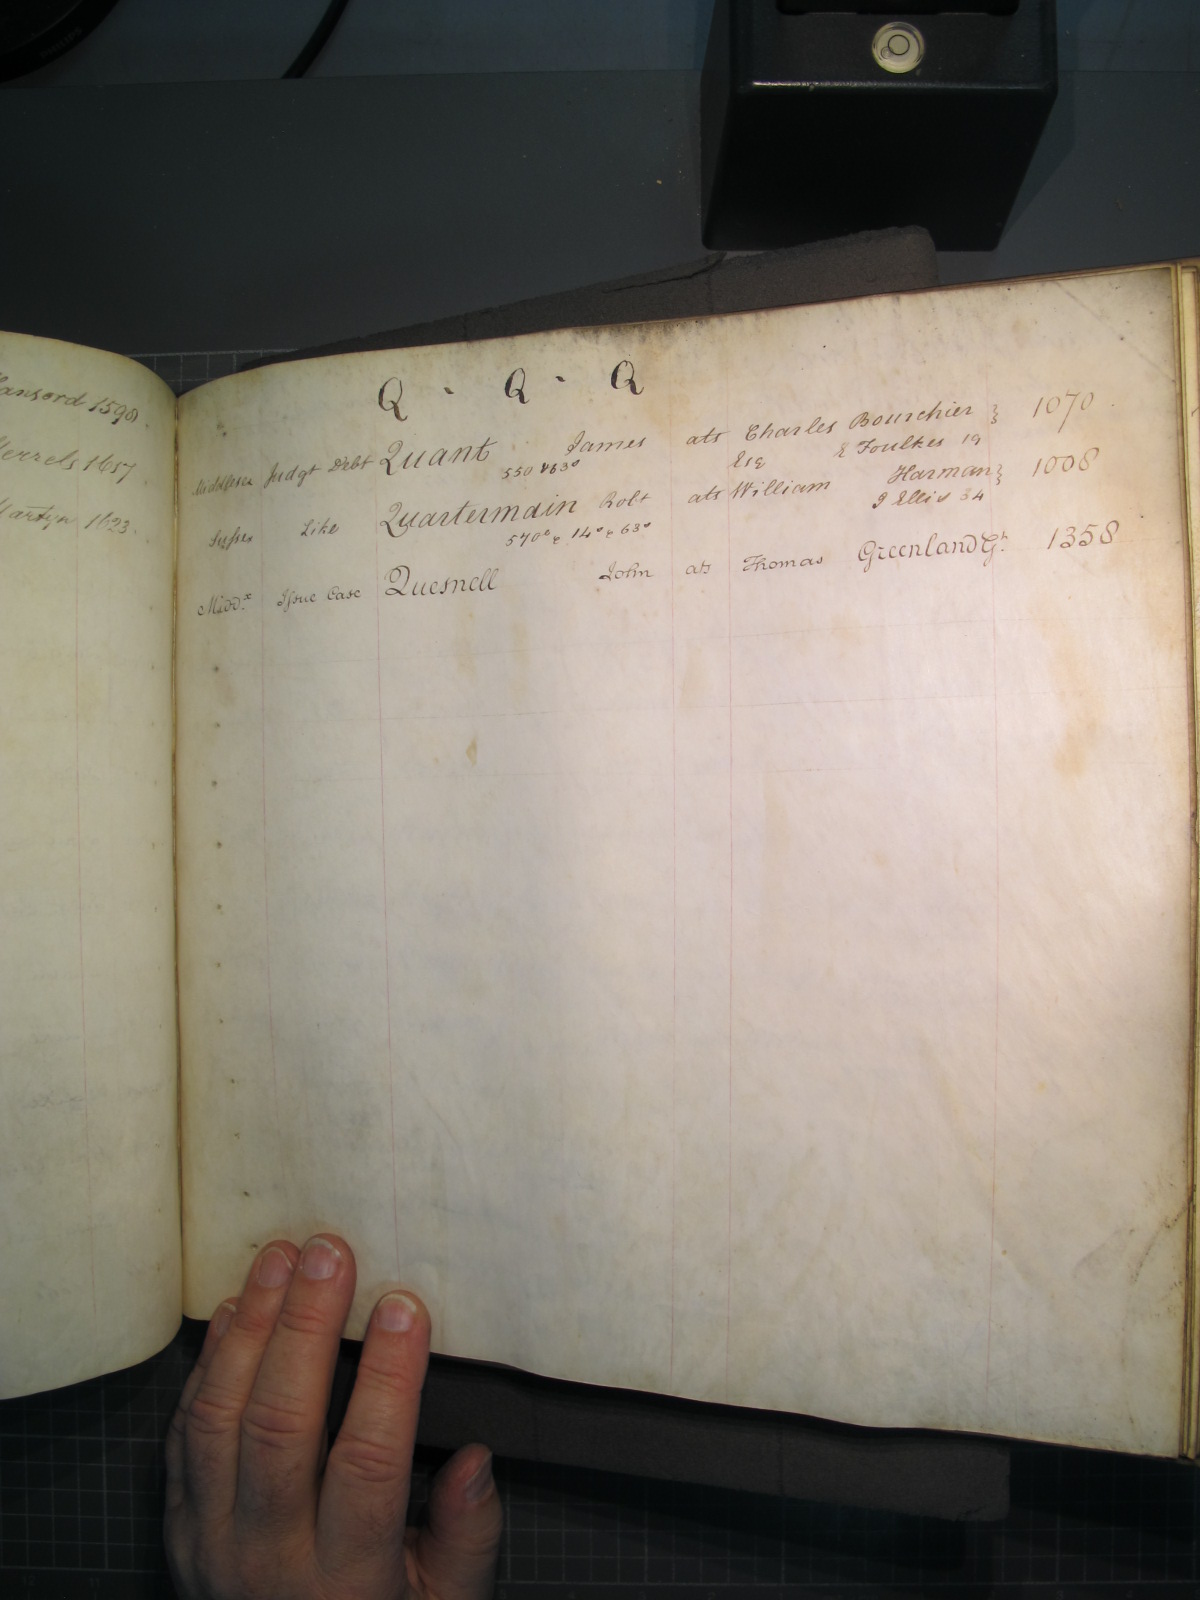 ansord 1598.
errels 1657
artyn 1623.
Q - Q - Q
Middlesex Judgt Debt Quant James ats Charles Bourchier } 1070
550 & 63º Esq E Foulkes 19
Sussex Like Quartermain Robt ats William Harman } 1008
570º & 14º & 63º J Ellis 34
Middx Issue Case Quesnell John ats Thomas Greenland Gt. 1358